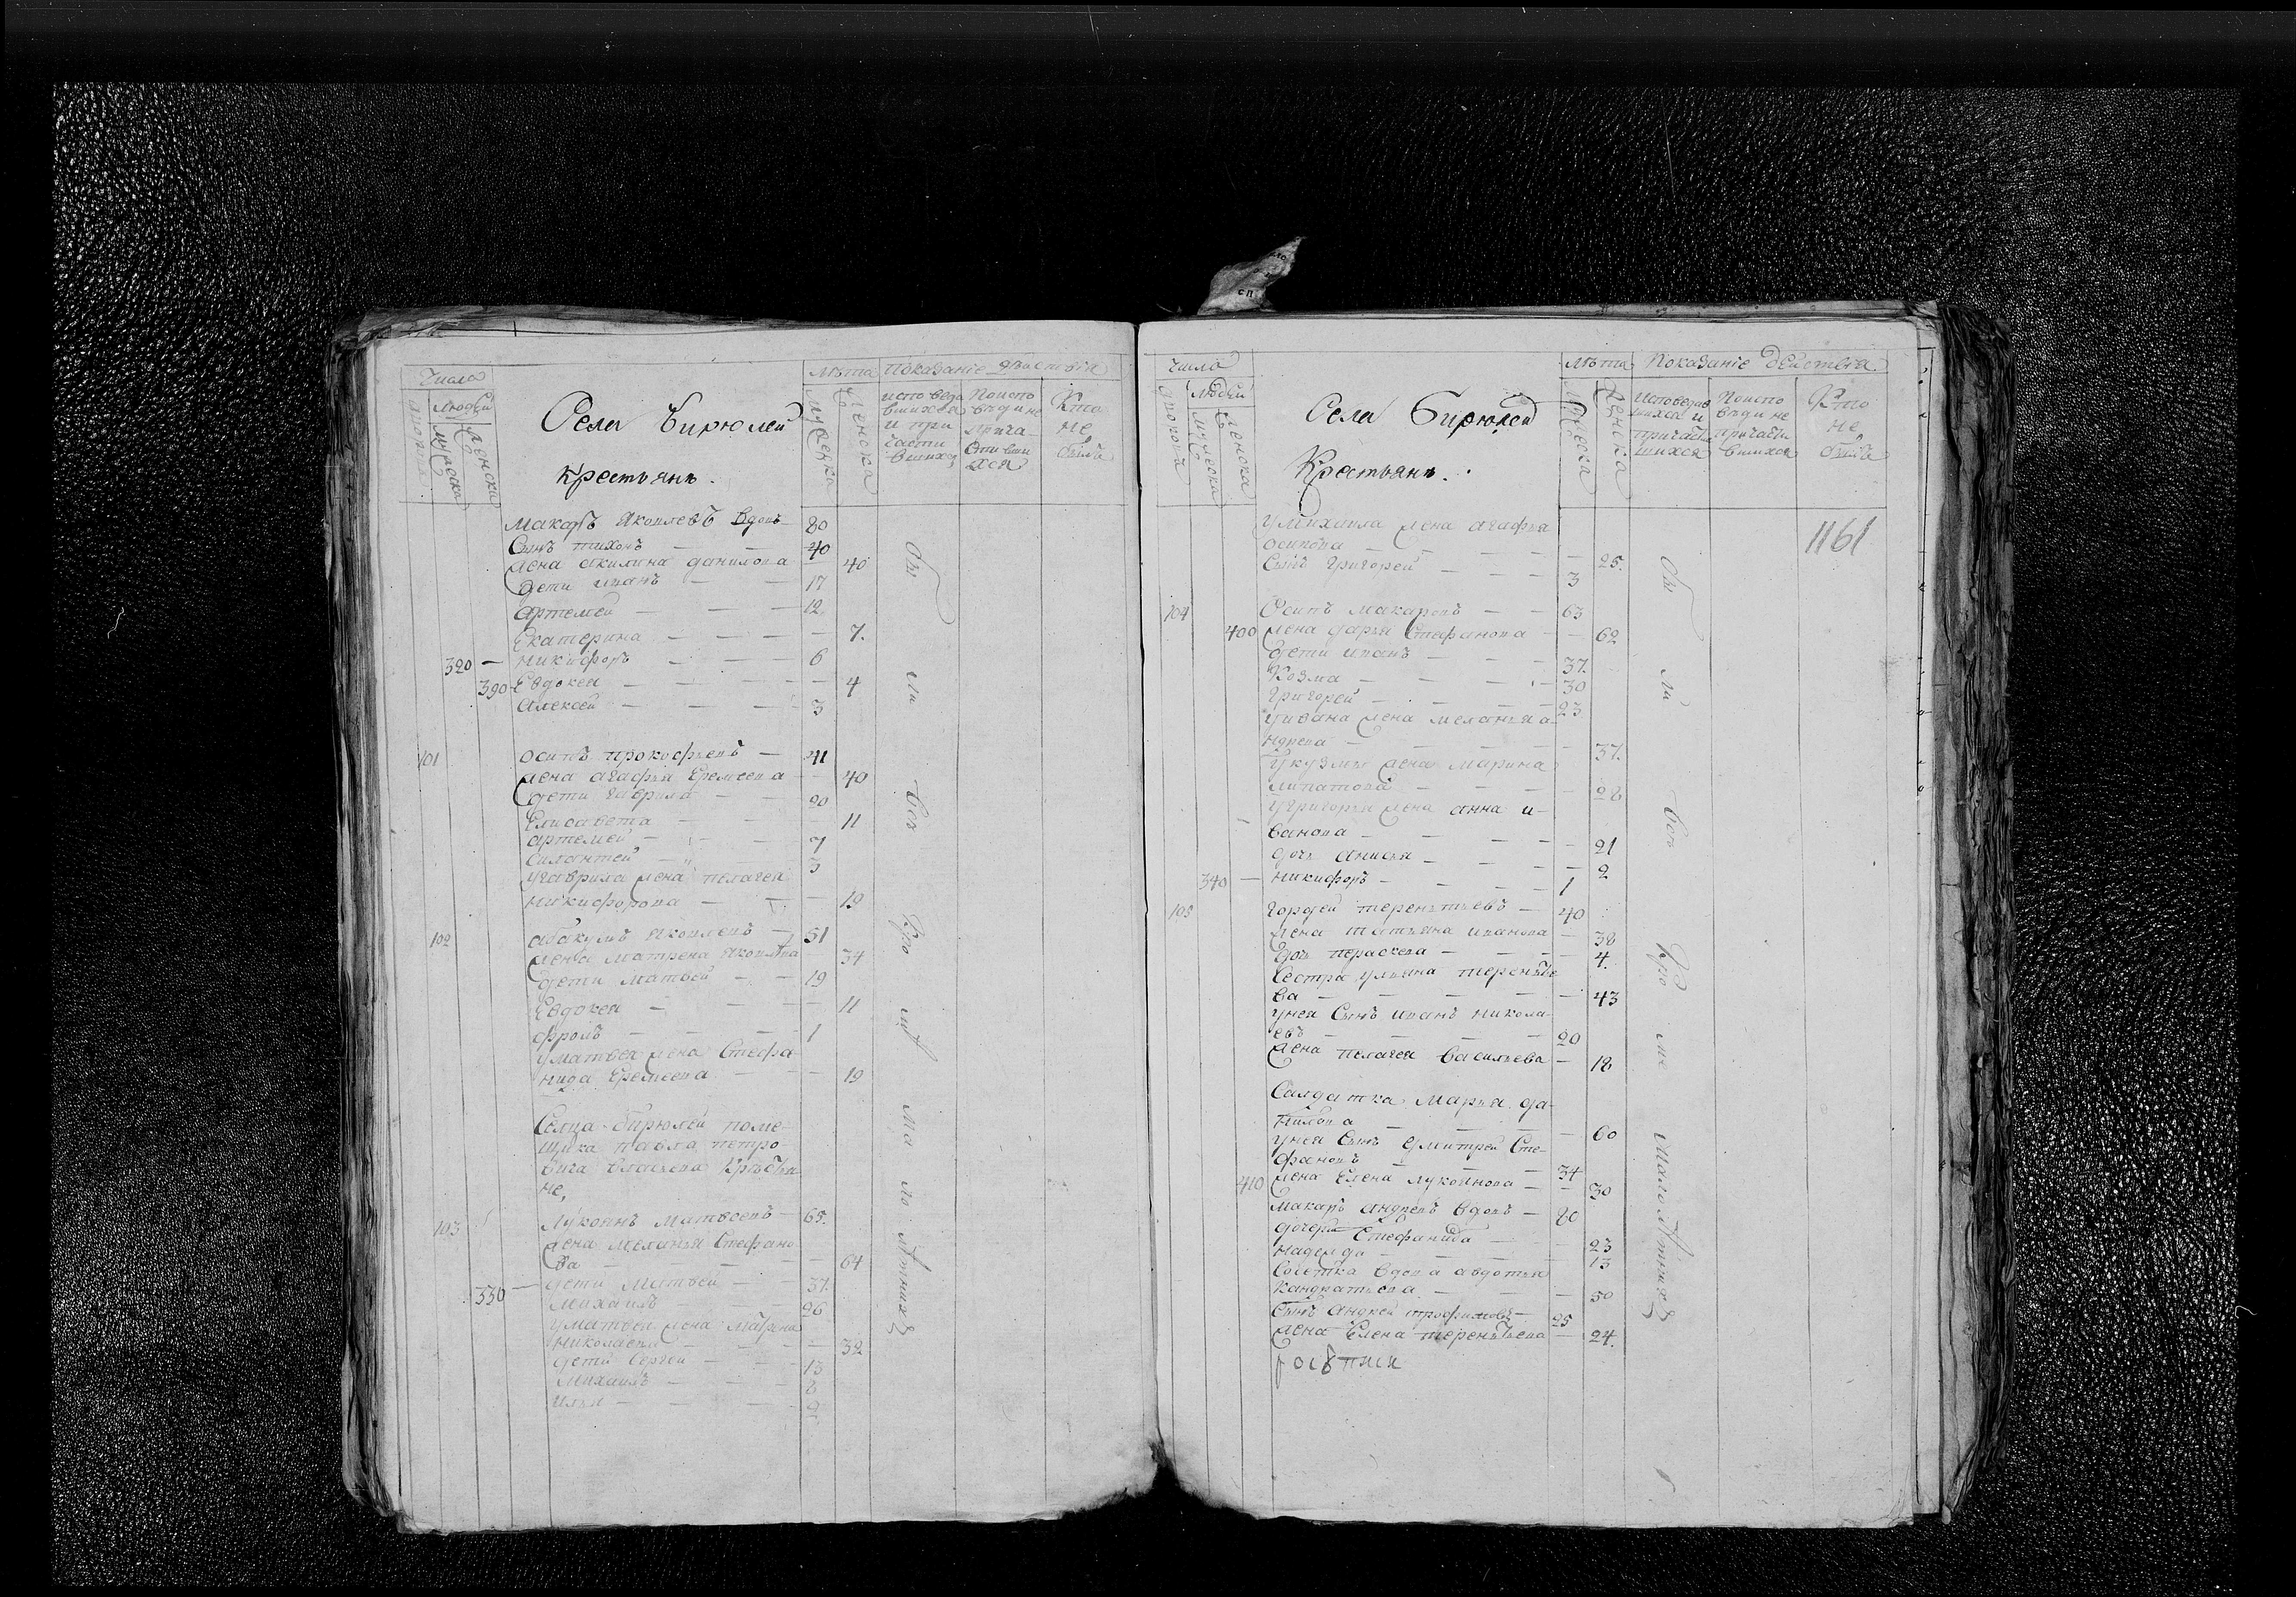 Числа
людей
дворовъ
мужеска
женска
Села Бирюлей
крестьянъ.
лѣта
мужеска
женска
Показаніе дѣиствія
исповеда
вшихся
и при
части
вшихся
По испо
вѣди не
прича
стивши
хся
Кто
не
былъ
Макаръ Яковлевъ вдовъ 80
Сынъ тихонъ — — 40
жена акилина данилова 40
дети иванъ — — 17
артемей — — — 12.
Екатерина — — — 7.
320 — никифоръ — — — 6
390 Евдокея — — — 4
Алексей — — — 3
101 осипъ прокофьевъ — 41
жена агафья Еремеева — 40
дети гаврила — — 20
Елисавета — 11
артемей — — 7
силантей — 3
угаврила жена пелагея
никифорова — — — 19
102 абакумъ яковлевъ — 51
жена матрена яковлева 34
дети матвей — — 19
Евдокея — — — 11
фролъ — — — 1
уматвея жена Стефа
нида Еремеева — — 19
Селца бирюлей поме
щика павла петро
вича крестья
не,
103 Лукоянъ матвеевъ — 65.
жена меланья Стефано
ва — — — 64
330 — дети матвей — — 37.
михаилъ — — 26
уматвея жена матрена
николаева — — — 32
дети Сергей — — — 13
михаилъ — — — 8
илья — — —
Бы ли всѣ Кро мѣ ма ло лѣтнихъ
Числа
людей
дворовъ
мужеска
женска
Села Бирюлей
Крестьянъ.
лѣта
мужеска
женска
Показаніе действія.
Исповедав
шихся и
причасти
шихся
По испо
вѣди не
причасти
вшихся
Кто
не
былъ
1161
умихаила жена агафья
осипова — — — — 25.
Сынъ григорей — — — 3
104 Осипъ макаровъ — — 63
400 жена дарья Стефанова — — 62
дети иванъ — — — 37.
Козма — — — 30
григорей — — — 23
уивана жена меланья а-
ндреева — — — — 37.
укузмы жена марина
липатова — — — — 28
угригорья жена анна и-
ванова — — — — 21
дочь анисья — — — 2
340 — никифоръ — — — — 1
105 гордей терентьевъ — 40
жена татьяна иванова — 38
дочь параскева — — — 4.
Сестра ульяна теренть
ва — — — — — 43
унея Сынъ иванъ никола-
евъ — — — — 20
жена пелагея васильева — 18
Салдатка марья да-
нилова — — — — 60
унея Сынъ дмитрей Сте-
фановъ — — — — 34
410 жена Елена лукоянова — — 30
макаръ андреевъ вдовъ — 80
дочери Стефанида — — 23
надежда — — — — 13
вдова авдотья
кандратьева — — — 50
Сынъ андрей трофимовъ — 25
жена Елена терентьева — 24.
Бы ли всѣ Кро мѣ малолѣтнихъ